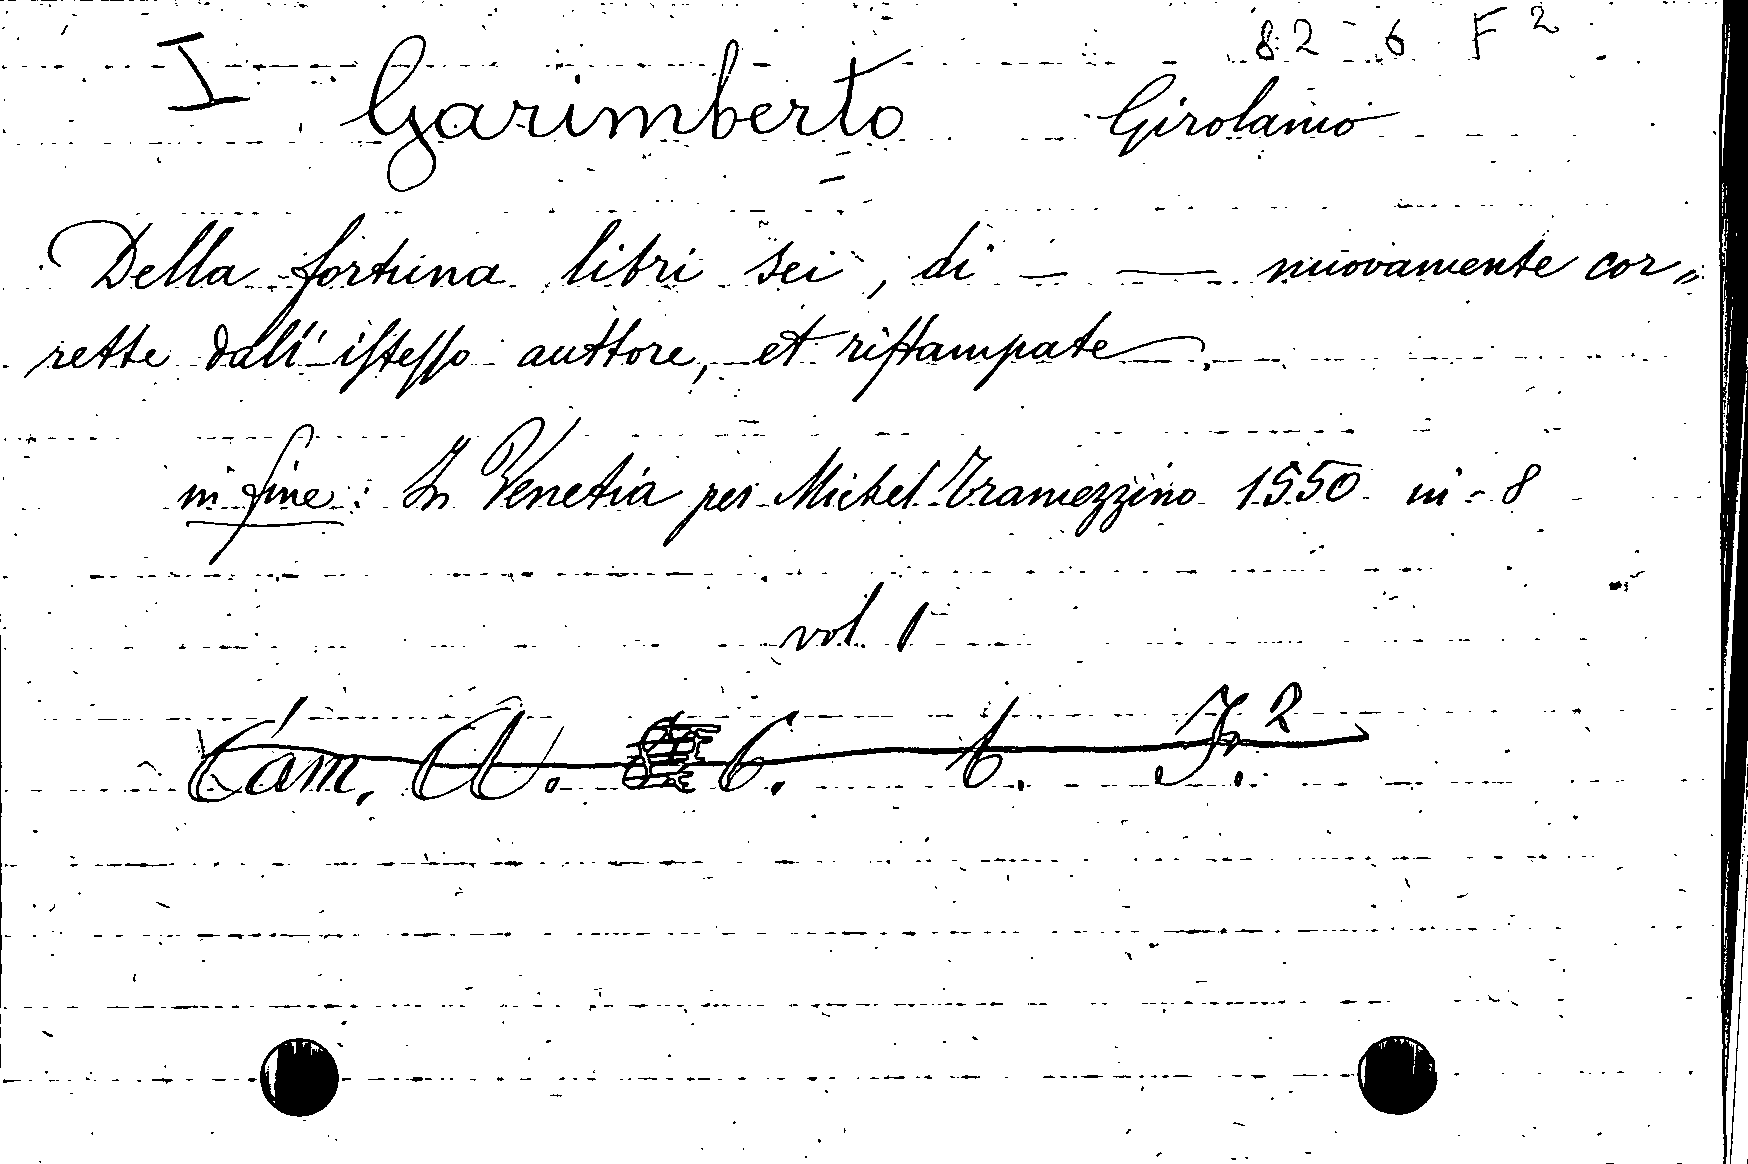 82 6 F 2
I Garimberto Girolamo
Della fortuna libri sei, di — — nuovamente cor„
rette dall'istesso auttore, et ristampate.
in fine: In Venetia per Michel Tramezzino 1550 in-8
vol. 1
Cam. A. 6. 6. F. 2